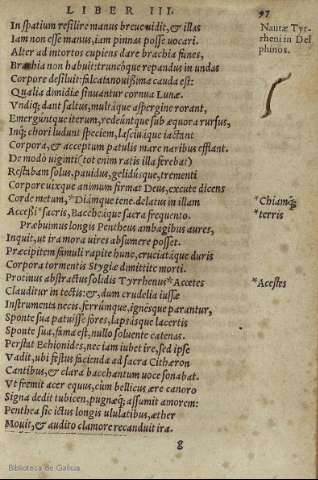 LIBER III.
97
In spatium resilire manus breue uidit, & illas
Iam non esse manus, iam pinnas posse uocari.
Alter ad intortos cupiens dare brachia funes,
Brachia non habuit: truncóque repandus in undas
Corpore desiluit: falcata nouißima cauda est:
Qualia dimidiæ sinuantur cornua Lunæ.
Vndiq; dant saltus, multáque aspergine rorant,
Emergúntque iterum, redeúntque sub æquora rursus,
Inq; chori ludunt speciem, lasciuáque iactant
Corpora, & acceptum patulis mare naribus efflant.
De modò uiginti (tot enim ratis illa ferebat)
Restabam solus, pauidus, gelidúsque, trementi
Corpore uixque animum firmat Deus, excute dicens
Corde metum, *Diámque tene. delatus in illam
Acceßi *sacris, Baccheáque sacra frequento.
Præbuimus longis Pentheus ambagibus aures,
Inquit, ut ira mora uires absumere posset.
Præcipitem famuli rapite hunc, cruciatáque duris
Corpora tormentis Stygiæ dimittite morti.
Protinus abstractus solidis Tyrrhenus *Accetes
Clauditur in tectis: &, dum crudelia iussæ
Instrumenta necis. ferrúmque, ignésque parantur,
Sponte sua patuisse fores, lapsásque lacertis
Sponte sua, fama est, nullo soluente catenas.
Perstat Echionides, nec iam iubet ire, sed ipse
Vadit, ubi festus facienda ad sacra Cithæron
Cantibus, & clara bacchantum uoce sonabat.
Vt fremit acer equus, cùm bellicus ære canoro
Signa dedit tubicen, pugnæq; assumit amorem:
Penthea sic ictus longis ululatibus, æther
Mouit, & audito clamore recanduit ira.
g
Nautæ Tyr-
rheni in Del
phinos.
*Chiamq́;
*terris
*Acestes
Biblioteca de Galicia